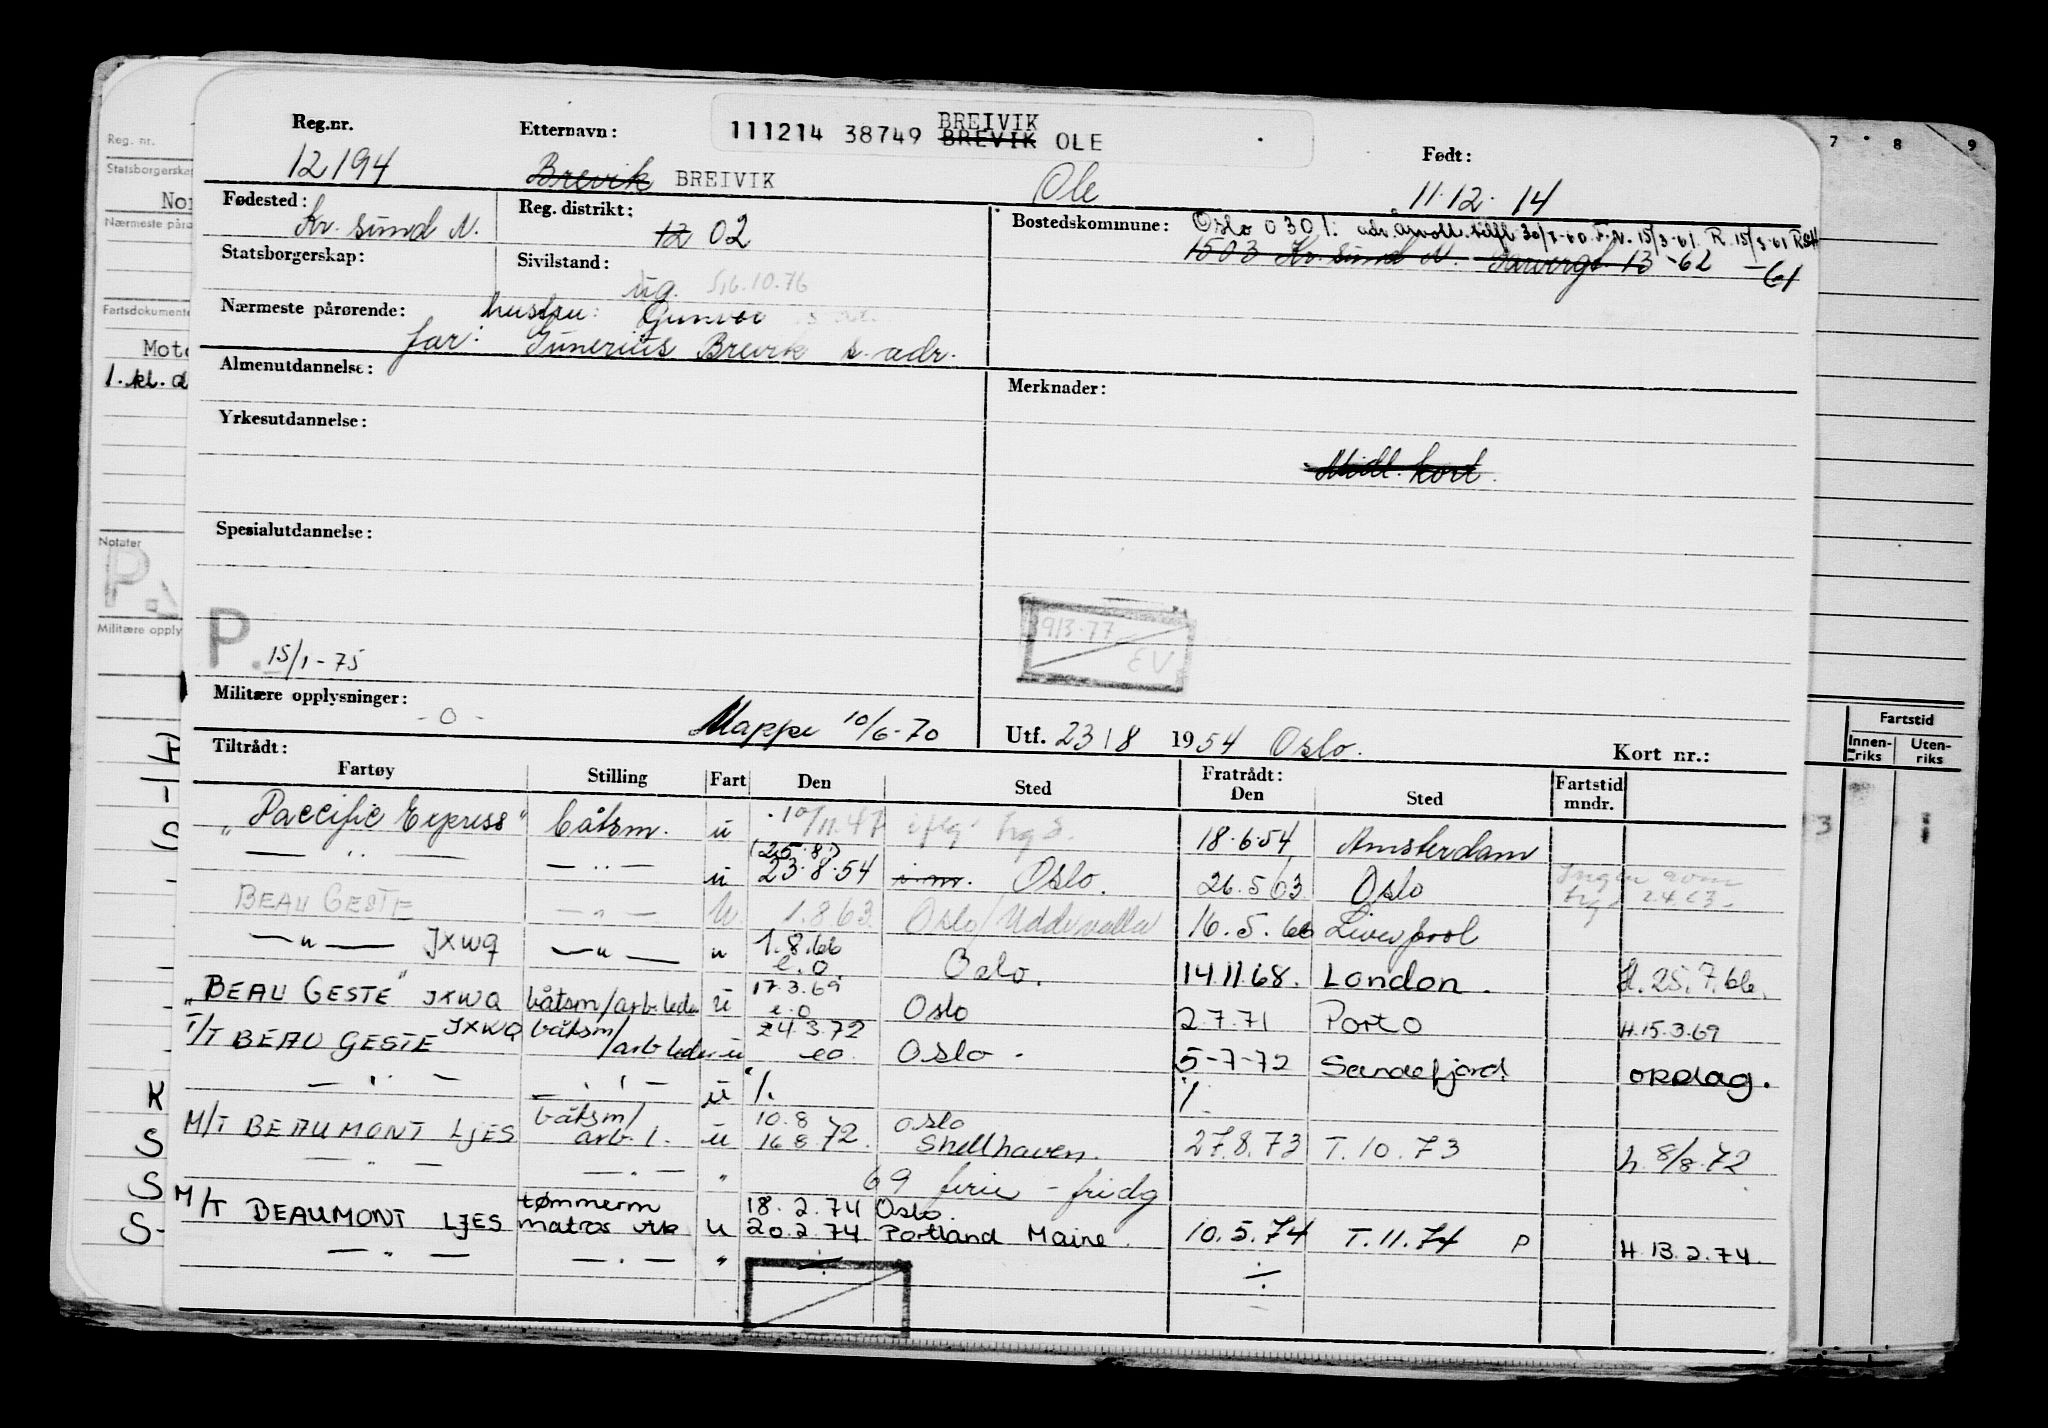 Reg.nr. Etternavn: 111214 38749 BREIVIK BREVIK OLE Født:
12194 Brevik BREIVIK Ole 11.12.14
Fødested: Kr. sund N. Reg. distrikt: 12 02 Bostedskommune: Oslo 0301:
1503 Kr. sund N. 13 -62 -61
Statsborgerskap: Sivilstand: ug.
Nærmeste pårørende: hustru: Gunvor
far: Gunerius Brevik s. adr.
Almenutdannelse: Merknader:
Yrkesutdannelse:
Midl. kort.
Spesialutdannelse:
913-77
EV
P. 15/1-75
Militære opplysninger: -o- Mappe 10/6-70 Utf. 23/8 1954 Oslo.
Tiltrådt: Kort nr.:
Fartøy Stilling Fart Den Sted Fratrådt: Den Sted Fartstid mndr.
"Paccific Express" båtsm. u 10/11.47 18.6.54 Amsterdam
— " — — " — u (25.8) 23.8.54 Oslo. 26.5.63 Oslo
BEAU GESTE — " — u. 1.8.63 Oslo/Uddevalla 16.5.66 Liverpool
— " — JXWQ — " — " 1.8.66 e.o. Oslo. 14.11.68. London. H. 25.7.66.
"BEAU GESTE" JXWQ båtsm/arb.leder u 17.3.69 e.o Oslo 2.7.71 Porto H.15.3.69
T/T BEAU GESTE JXWQ båtsm/arb leder u 24.3.72 eo Oslo. 5-7-72 Sandefjord opdag.
— " — — " — u ·/. ·/.
M/T BEAUMONT LJES båtsm/arb.l. u 10.8 16.8.72. Oslo Shellhaven. 27.8.73 T.10.73 h. 8/8.72
— " — — " — " 69 ferie - fridg
M/T BEAUMONT LJES tømmerm matros vik u 18.2.74 20.2.74 Oslo. Portland Maine. 10.5.74 T.11.74 P H.13.2.74.
— " — — " — " ÷ ÷
Reg. nr.
Statsborgerskap
Nor
Nærmeste pårø
Fartsdokumente
Moto
1. kl. d
Notater
P.
Militære opply
K
S
S
S-
7 8 9
Fartstid
Innen-riks Uten-riks
3 1